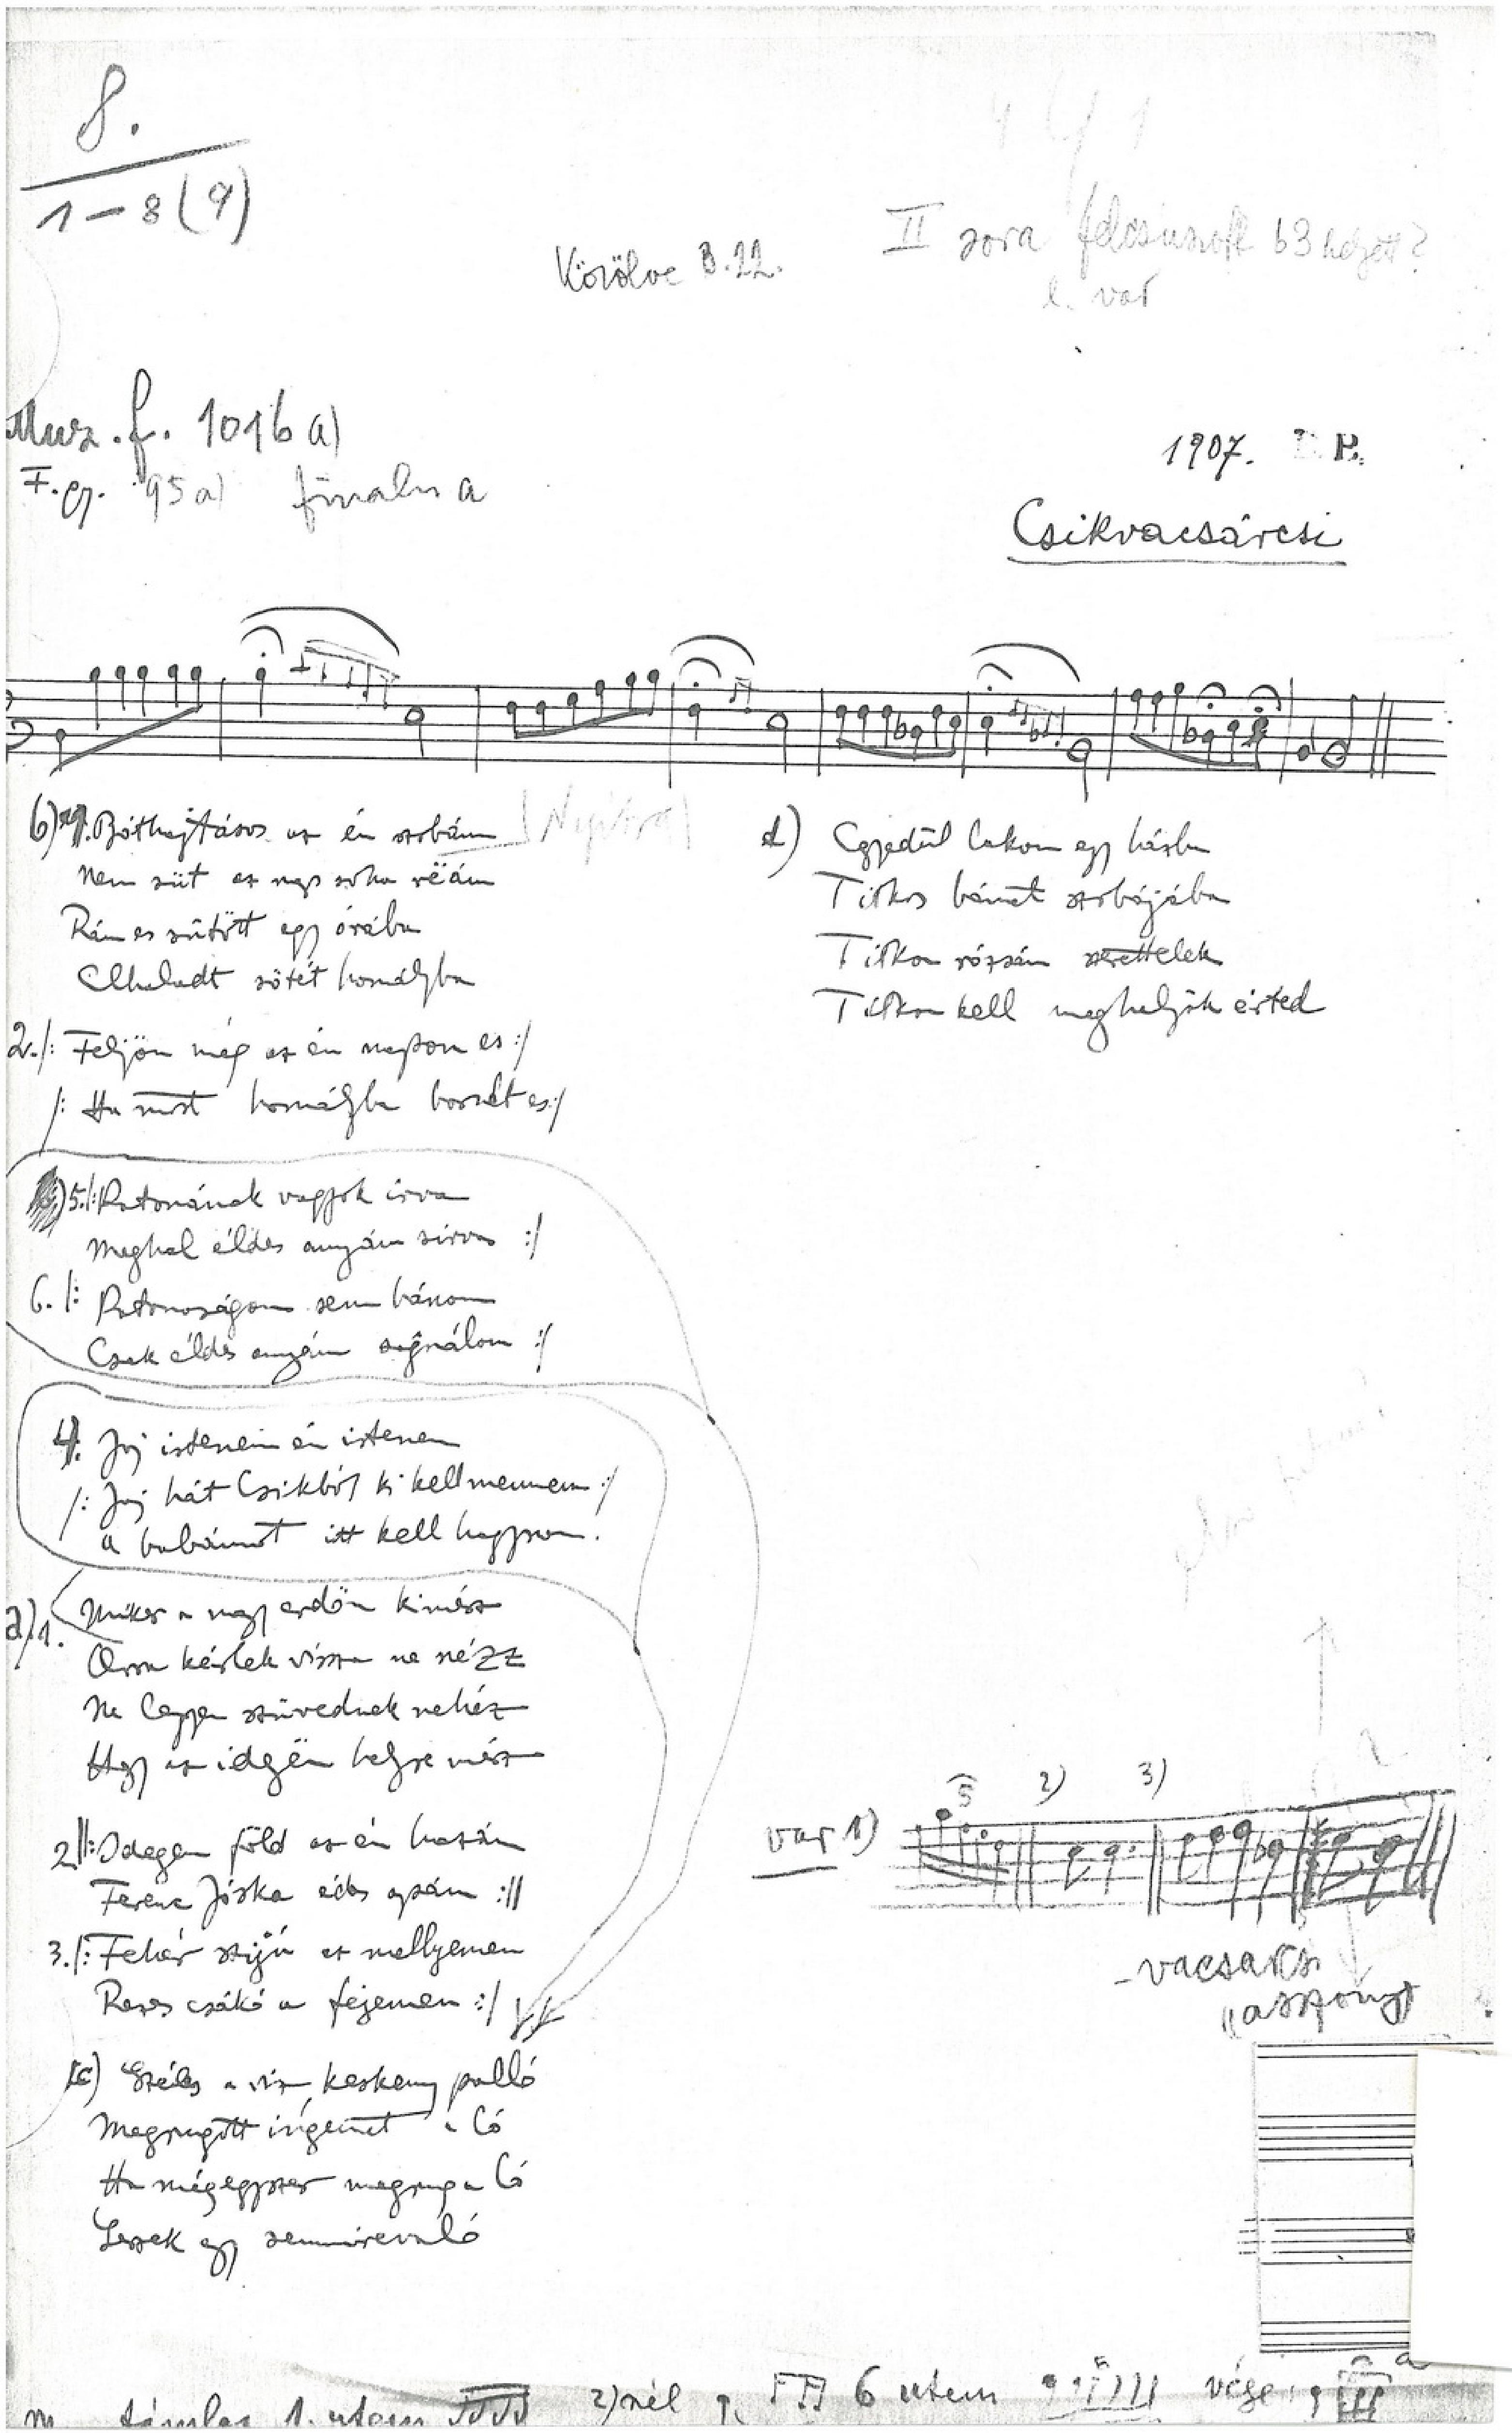 8.
1-8(9)
II sora b3 helyett?
l. var
Közölve B.22.
Muz. f. 1016 a)
F. gy. 95a) finalis a
1907. B.
Csikvacsárcsi
b) 1. Bóthajtásos az én szobám
Nem süt az nap soha rëám
Rám es sütött egy órába
Elhaladt sötét homályba
2. /: Feljön még az én napom es :/
/: Ha most homályba borult es :/
5. /: Katonának vagyok irva
Meghal éldes anyám sirva :/
6. /: Katonaságom sem bánom
Csak éldes anyám sajnálom :/
4. Jaj istenem én istenem
/: Jaj hát Csikból ki kell mennem :/
a babámot itt kell hagyjam.
a) 1. Mikor a nagy erdőn kimész
Arra kérlek vissza ne nézz
Ne legyen szüvednek nehéz
Hogy az idegën helyre mész
2. ||: Idegen föld az én hazám
Ferenc Jóska édes apám :||
3. /: Fehér szijú az mellyemen
Rezes csákó a fejemen :/
c) Széles a viz keskeny palló
Megrugott ingemet a ló
Ha mégegyszer megrug a ló
Leszek egy semmirevaló
d) Egyedül lakom egy házba
Titkos bánat szobájába
Titkon rózsám szerettelek
Titkon kell meghaljak érted
var 1) 5 2) 3)
-vacsárcsi
"asszony"
1. utem 2) nél 6 utem vége